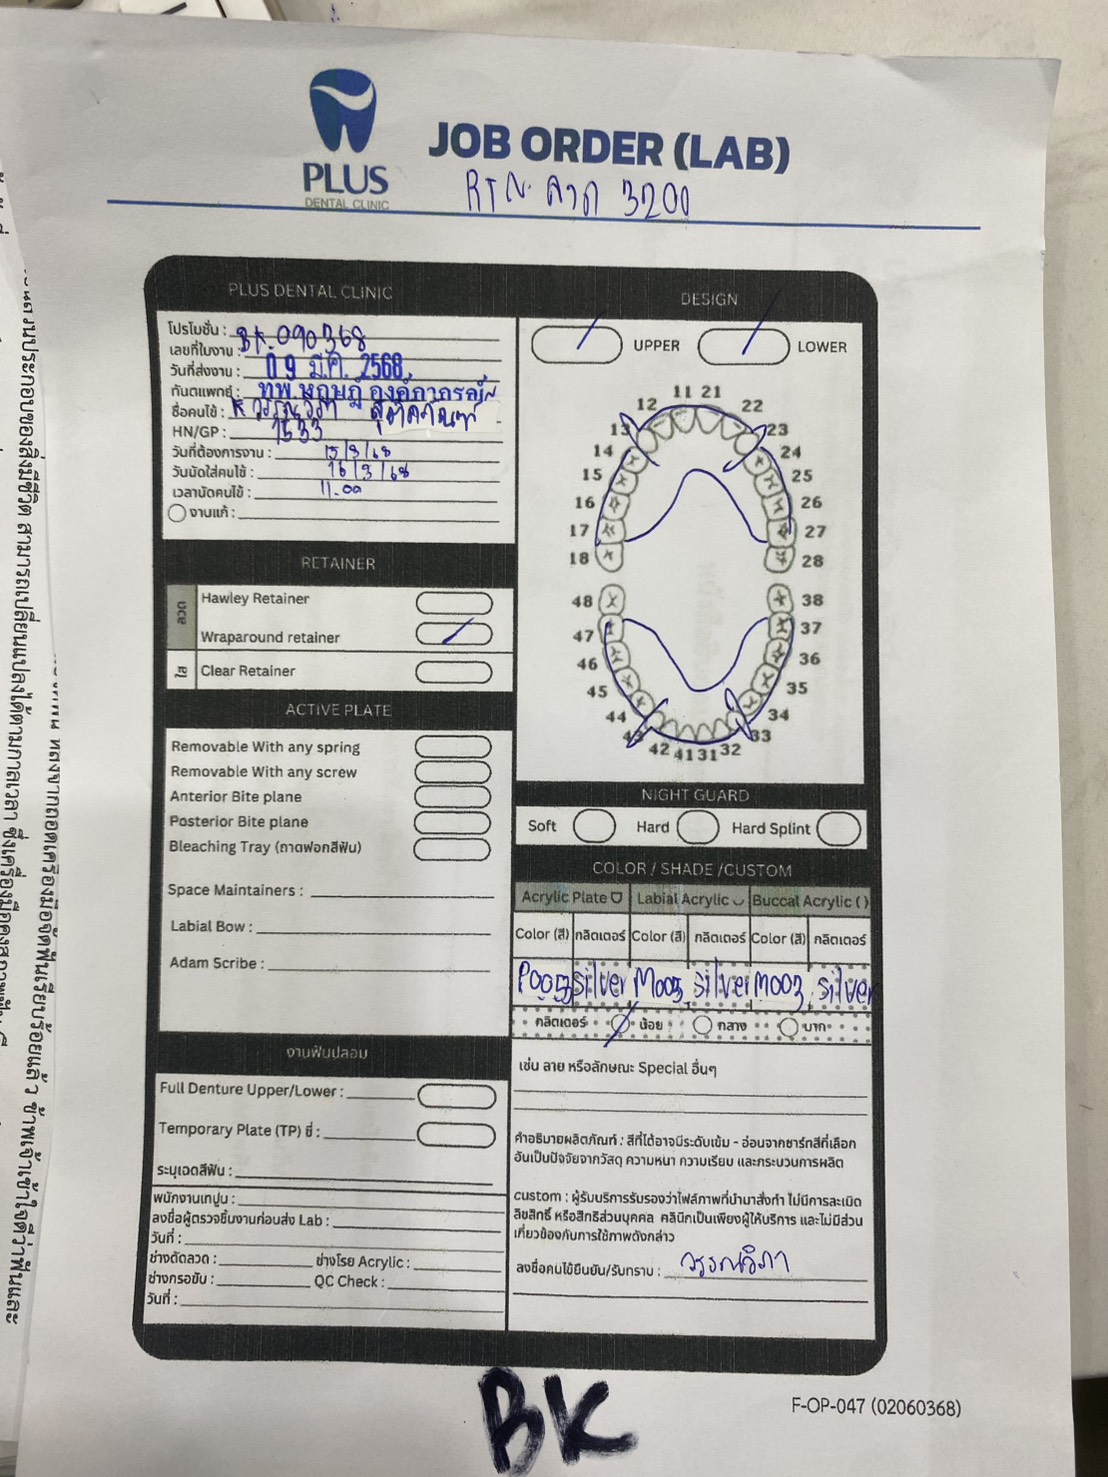 PLUS
DENTAL CLINIC
JOB ORDER (LAB)
RTN. ลวด 3200
PLUS DENTAL CLINIC
โปรโมชั่น :
เลขที่ใบงาน : BK.090368
วันที่ส่งงาน : 09 มี.ค. 2568
ทันตแพทย์ : ทพ.
ชื่อคนไข้ : K วรรณวิภา
HN/GP : 1533
วันที่ต้องการงาน : 15/3/68
วันนัดใส่คนไข้ : 16/3/68
เวลานัดคนไข้ : 11.00
งานแก้ :
RETAINER
ลวด
Hawley Retainer
Wraparound retainer
ใส
Clear Retainer
ACTIVE PLATE
Removable With any spring
Removable With any screw
Anterior Bite plane
Posterior Bite plane
Bleaching Tray (ถาดฟอกสีฟัน)
Space Maintainers :
Labial Bow :
Adam Scribe :
งานฟันปลอม
Full Denture Upper/Lower :
Temporary Plate (TP) ซี่ :
ระบุเฉดสีฟัน :
พนักงานเทปูน :
ลงชื่อผู้ตรวจชิ้นงานก่อนส่ง Lab :
วันที่ :
ช่างดัดลวด : ช่างโรย Acrylic :
ช่างกรอขัด : QC Check :
วันที่ :
DESIGN
UPPER LOWER
11 21
12 22
13 23
14 24
15 25
16 26
17 27
18 28
48 38
47 37
46 36
45 35
44 34
43 33
42 41 31 32
NIGHT GUARD
Soft Hard Hard Splint
COLOR / SHADE /CUSTOM
Acrylic Plate Labial Acrylic Buccal Acrylic ( )
Color (สี) กลิตเตอร์ Color (สี) กลิตเตอร์ Color (สี) กลิตเตอร์
P005 silver M005 silver M003 silver
กลิตเตอร์ น้อย กลาง มาก
เช่น ลาย หรือลักษณะ Special อื่นๆ
คำอธิบายผลิตภัณฑ์ : สีที่ได้อาจมีระดับเข้ม - อ่อนจากชาร์ทสีที่เลือก
อันเป็นปัจจัยจากวัสดุ ความหนา ความเรียบ และกระบวนการผลิต
custom : ผู้รับบริการรับรองว่าไฟล์ภาพที่นำมาสั่งทำ ไม่มีการละเมิด
ลิขสิทธิ์ หรือสิทธิส่วนบุคคล คลินิกเป็นเพียงผู้ให้บริการ และไม่มีส่วน
เกี่ยวข้องกับการใช้ภาพดังกล่าว
ลงชื่อคนไข้ยืนยัน/รับทราบ : วรรณวิภา
BK
F-OP-047 (02060368)